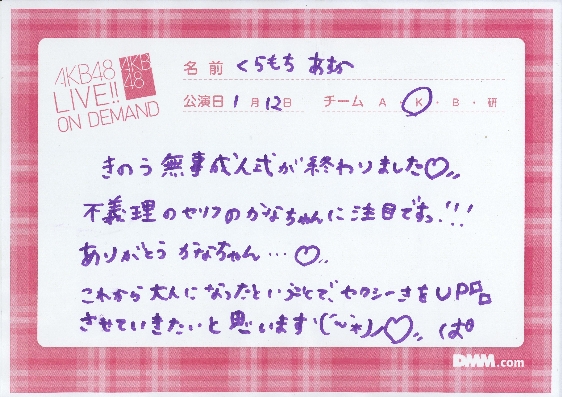 AKB48
LIVE!!
ON DEMAND
AKB
48
名前 くらもち あすか
公演日 1月12日 チーム A・K・B・研
きのう無事成人式が終わりました♡〟
不義理のセリフのかなちゃんに注目ですっ!!!
ありがとうかなちゃん…♡〟
これから大人になったということで、セクシーさをUP
させていきたいと思います
DMM.com